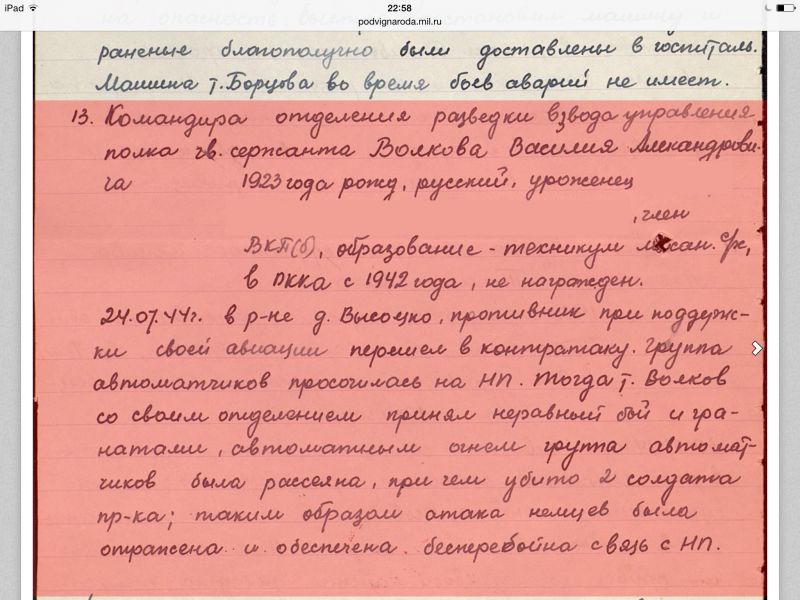 iPad 22:58
podvignaroda.mil.ru
раненые благополучно были доставлены в госпиталь.
Машина т. Борцова во время боев аварий не имеет.
13. Командира отделения разведки взвода управления
полка гв. сержанта Волкова Василия Александрови-
ча 1923 года рожд, русский, уроженец
, член
ВКП(б), образование - техникум механ. с/х,
в РККА с 1942 года, не награжден.
24.07.44г. в р-не д. Высоцко, противник при поддерж-
ки своей авиации перешел в контратаку. Группа
автоматчиков просочилась на НП. Тогда т. Волков
со своим отделением принял неравный бой и гра-
натами, автоматным огнем группа автомат-
чиков была рассеяна, при чем убито 2 солдата
пр-ка; таким образом атака немцев была
отражена и обеспечена бесперебойна связь с НП.